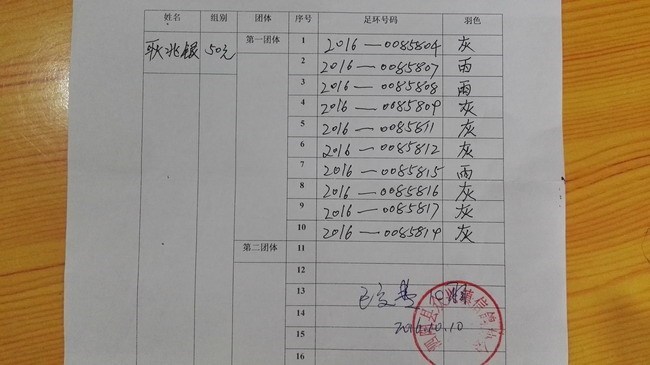 姓名 组别 团体 序号 足环号码 羽色
耿兆银 50元 第一团体 1 2016—0085804 灰
2 2016—0085807 雨
3 2016—0085808 雨
4 2016—0085809 灰
5 2016—0085811 灰
6 2016—0085812 灰
7 2016—0085815 雨
8 2016—0085816 灰
9 2016—0085817 灰
10 2016—0085819 灰
第二团体 11
12
13
14
2016.10.10
15
16